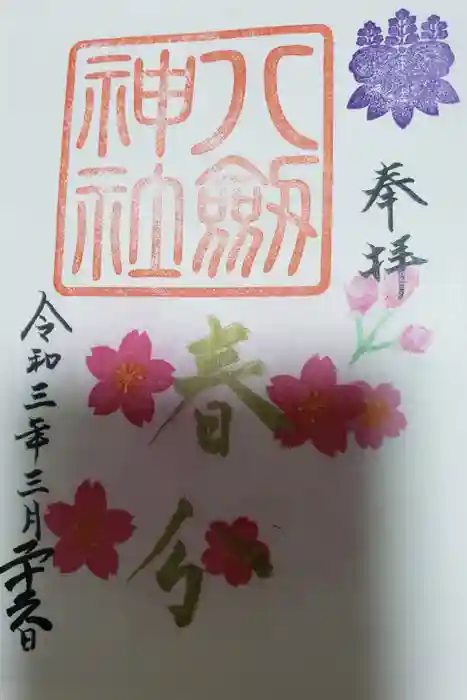 奉拝
八劔神社
春分
令和三年三月二十春日